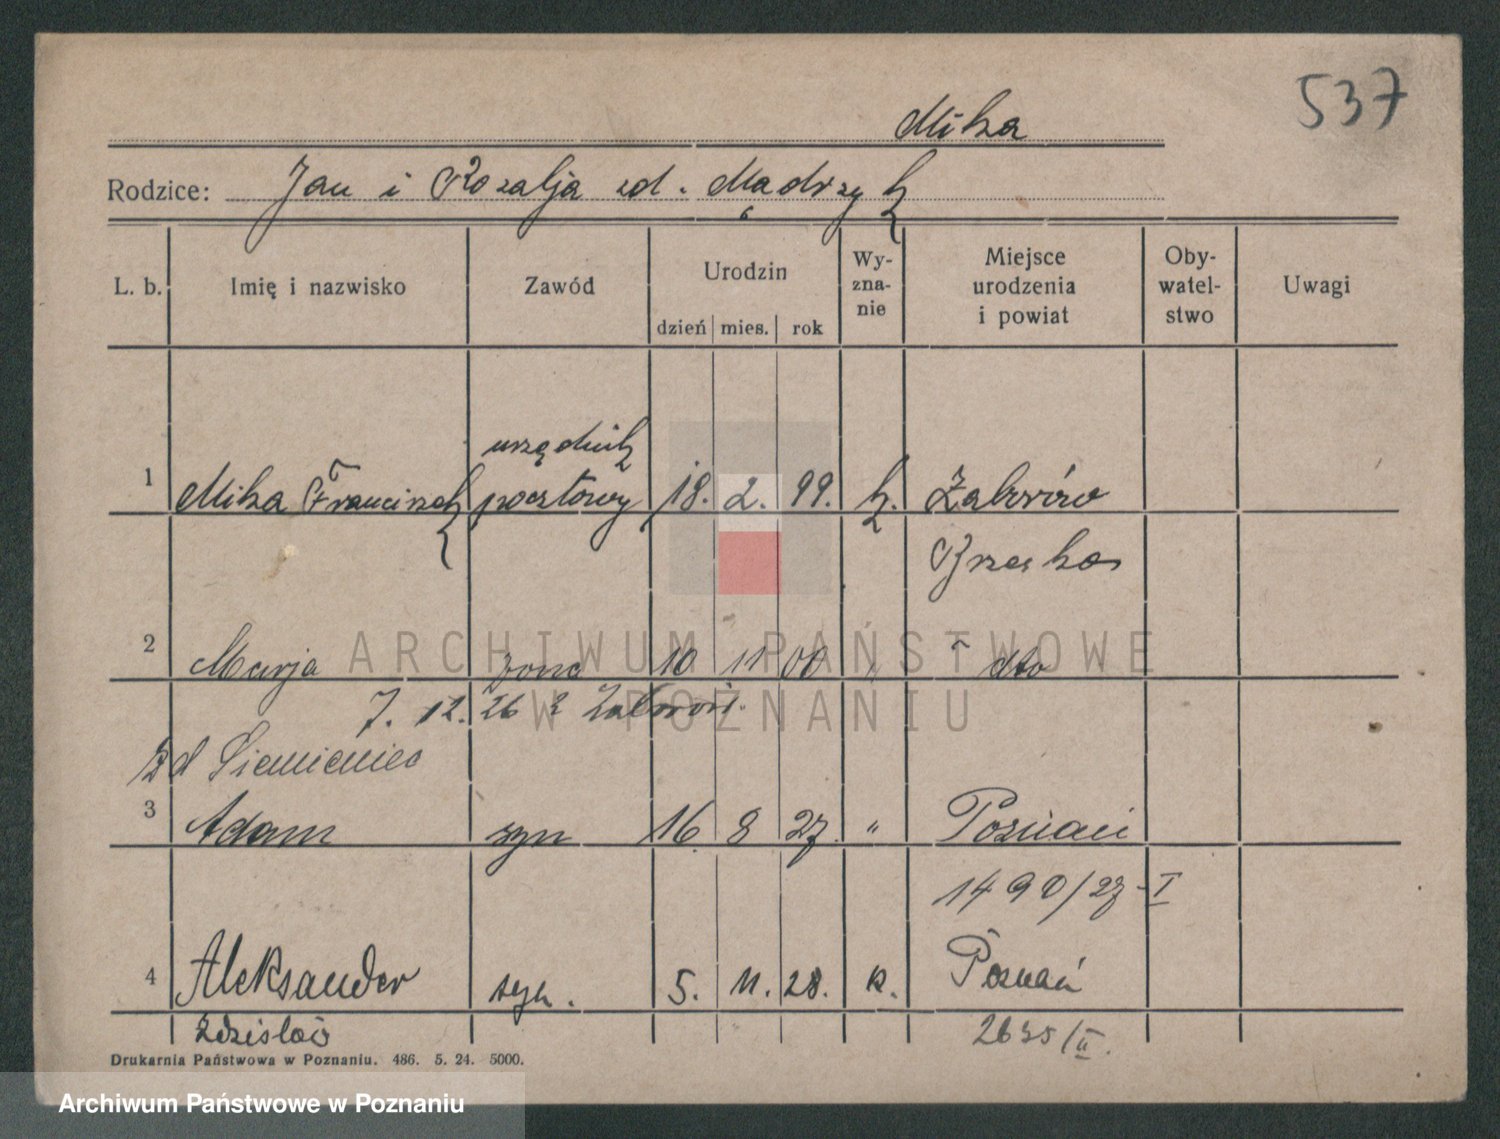 537
Mika
Rodzice: Jan i Rozalja zd. Mądrzyk
L. b. Imię i nazwisko Zawód Urodzin dzień mies. rok Wy-zna-nie Miejsce urodzenia i powiat Oby-watel-stwo Uwagi
urzędnik
1 Mika Franciszek pocztowy 18. 2. 99. k. Zaborów
Brzesko
2 Marja żona 10 11 00 " dto
7. 12. 26 z Zaborów.
zd Siemieniec
3 Adam syn 16 8 27 " Poznań
1490/27-I
4 Aleksander syn. 5. 11. 28. k. Poznań
Zdzisław 2635/II.
Drukarnia Państwowa w Poznaniu. 486. 5. 24. 5000.
ARCHIWUM PAŃSTWOWE
W POZNANIU
Archiwum Państwowe w Poznaniu